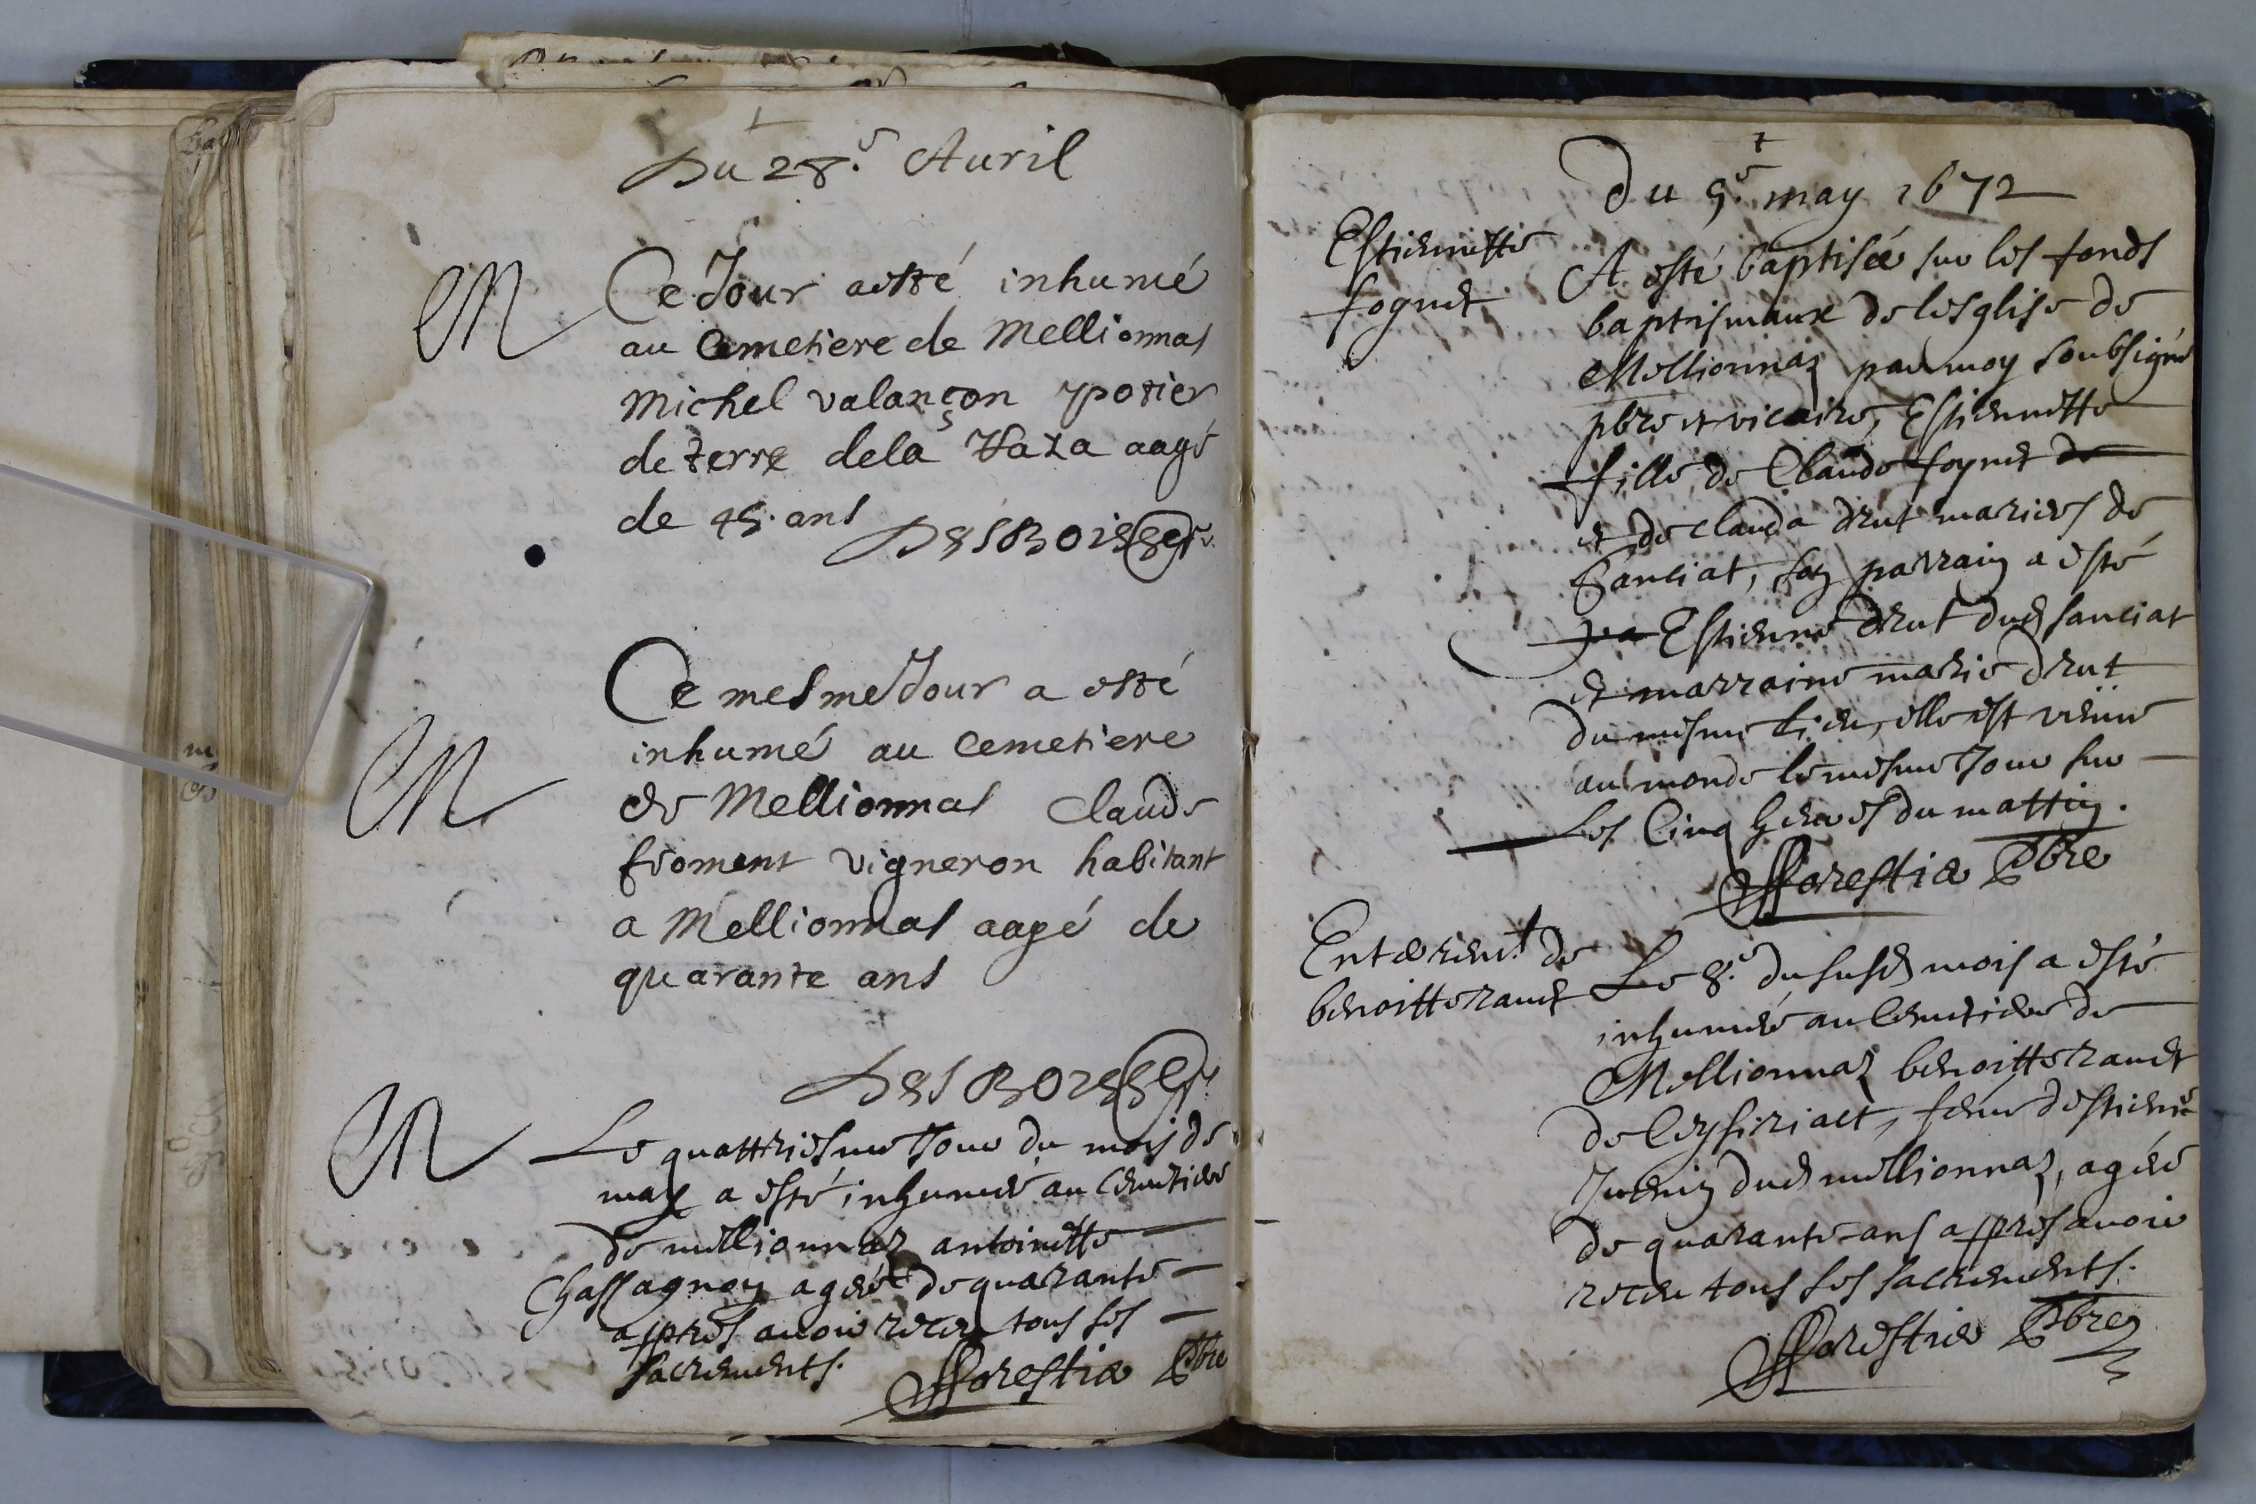 Du 28.e Auril
M
Ce Jour aesté inhumé
au Cemetiere de Mellionnas
Michel valançon potier
de terre dela aagé
de 45. ans
Ce mesme Jour a esté
M
inhumé au Cemetiere
de Mellionnas Claude
froment vigneron habitant
a Mellionnas aagé de
quarante ans
M
Le quattriesme Jour du mois de
may a esté inhumée au Cemetiere
de mellionnaz antoinette
Chassagnon agéé de quarante
appres auoir receu tous ses
sacrements.
fforestier Pbre
Du 5.e may 1672
Estiennette
foguet
A esté baptisée sur les fonds
baptismaux de lesglise de
Mellionnaz par moy soubsigné
pbre et vicaire, Estiennette
fille de Claude foguet de
et de Clauda drut mariés de
Sanciat, son parrain a esté
Estienne drut dud sanciat
et marraine marie drut
du mesme lieu, elle est venüe
au monde le mesme Jour sur
Les Cinq heures du mattin.
fforestier Pbre
Enterrem.t de
benoitte
Le 8.e du susd mois a esté
inhumée au Cemetiere de
Mellionnaz benoitte
de Ceysiriact, feme destiene
dud mellionnaz, agéé
de quarante ans appres auoir
receu tous ses sacrements.
fforestier Pbre